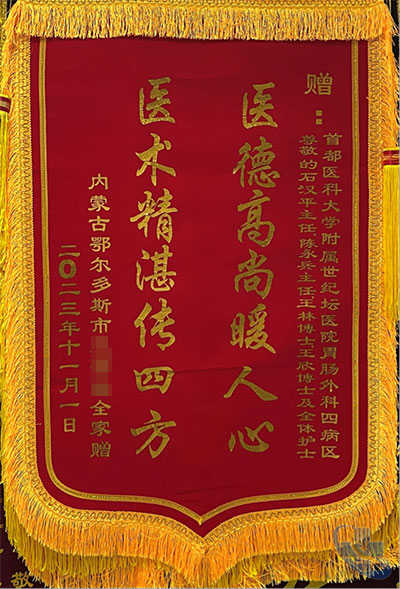 赠：
首都医科大学附属世纪坛医院胃肠外科四病区
尊敬的石汉平主任陈永兵主任王林博士王欣博士及全体护士
医德高尚暖人心
医术精湛传四方
内蒙古鄂尔多斯市 全家赠
二〇二三年十一月一日
敬